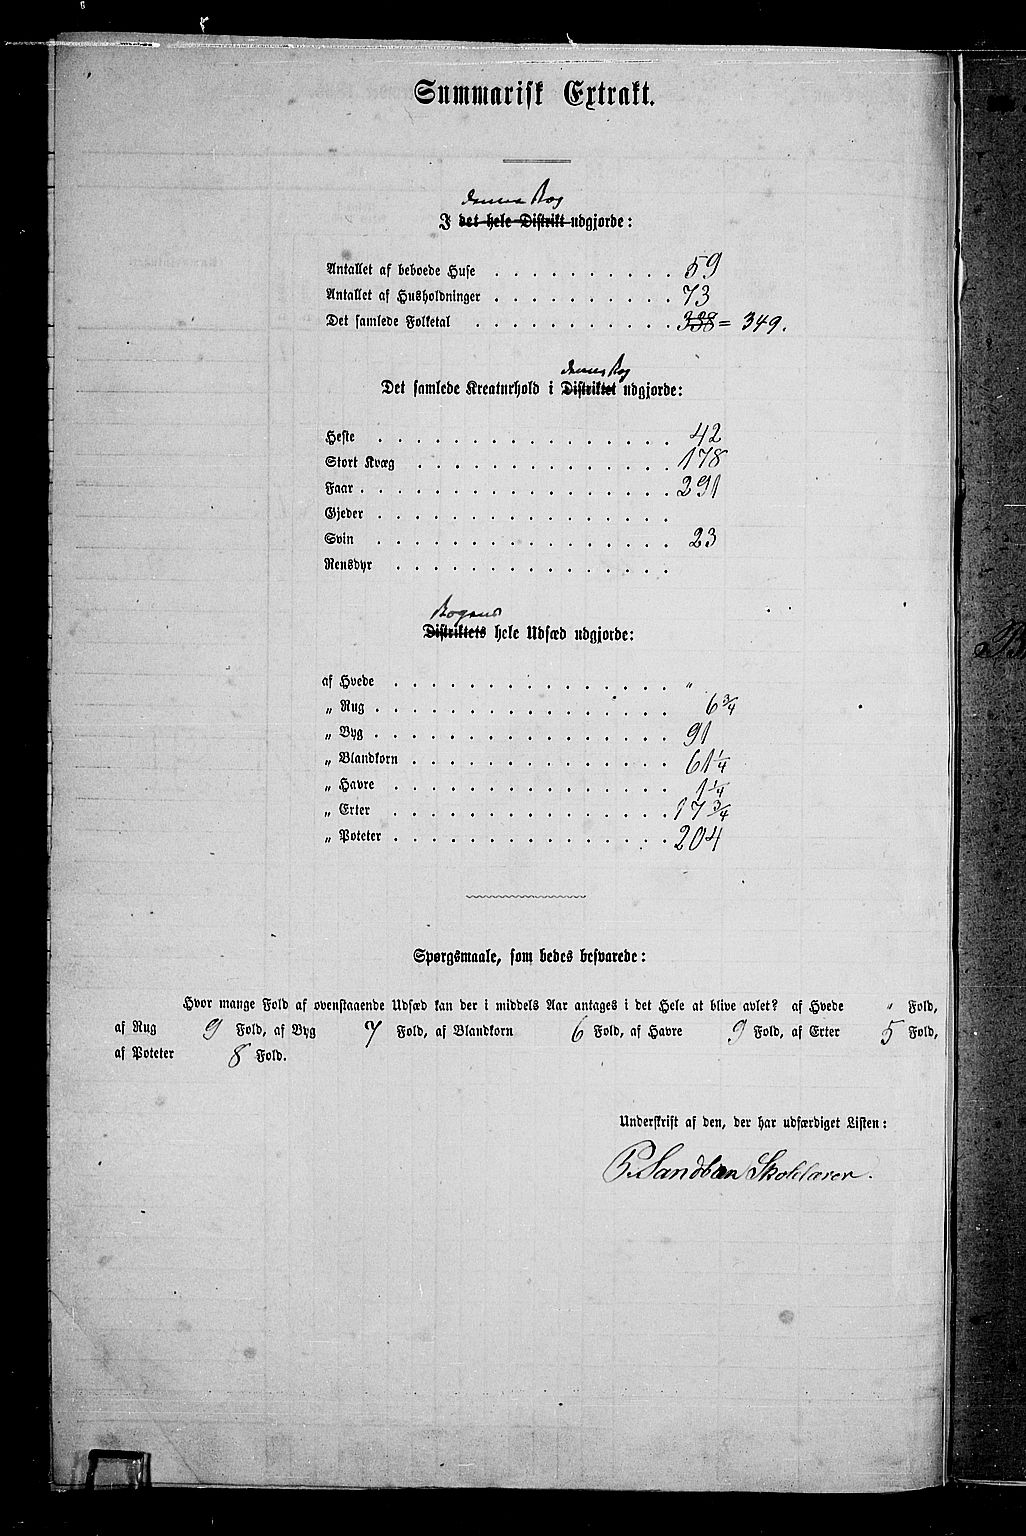 Summarisk Extrakt.
denne Bog
I det hele Distrikt udgjorde:
Antallet af beboede Huse . . . . . . . . . . 59
Antallet af Husholdninger . . . . . . . . . . 73
Det samlede Folketal . . . . . . . . . . . 338 = 349.
denne Bog
Det samlede Kreaturhold i Distriktet udgjorde:
Heste . . . . . . . . . . . . . . . . 42
Stort Kvæg . . . . . . . . . . . . . . 178
Faar . . . . . . . . . . . . . . . . . 291
Gjeder . . . . . . . . . . . . . . . .
Svin . . . . . . . . . . . . . . . . 23
Rensdyr . . . . . . . . . . . . . . .
Bogens
Distriktets hele Udsæd udgjorde:
af Hvede . . . . . . . . . . . . . . . "
„ Rug . . . . . . . . . . . . . . . . 6 3/4
„ Byg . . . . . . . . . . . . . . . . 91
„ Blandkorn . . . . . . . . . . . . . . 61 1/4
„ Havre . . . . . . . . . . . . . . . 1 1/4
„ Erter . . . . . . . . . . . . . . . 17 3/4
„ Poteter . . . . . . . . . . . . . . . 204
Spørgsmaale, som bedes besvarede:
Hvor mange Fold af ovenstaaende Udsæd kan der i middels Aar antages i det Hele at blive avlet? af Hvede " Fold,
af Rug 9 Fold, af Byg 7 Fold, af Blandkorn 6 Fold, af Havre 9 Fold, af Erter 5 Fold,
af Poteter 8 Fold.
Underskrift af den, der har udfærdiget Listen:
P. Sandben Skolelærer.